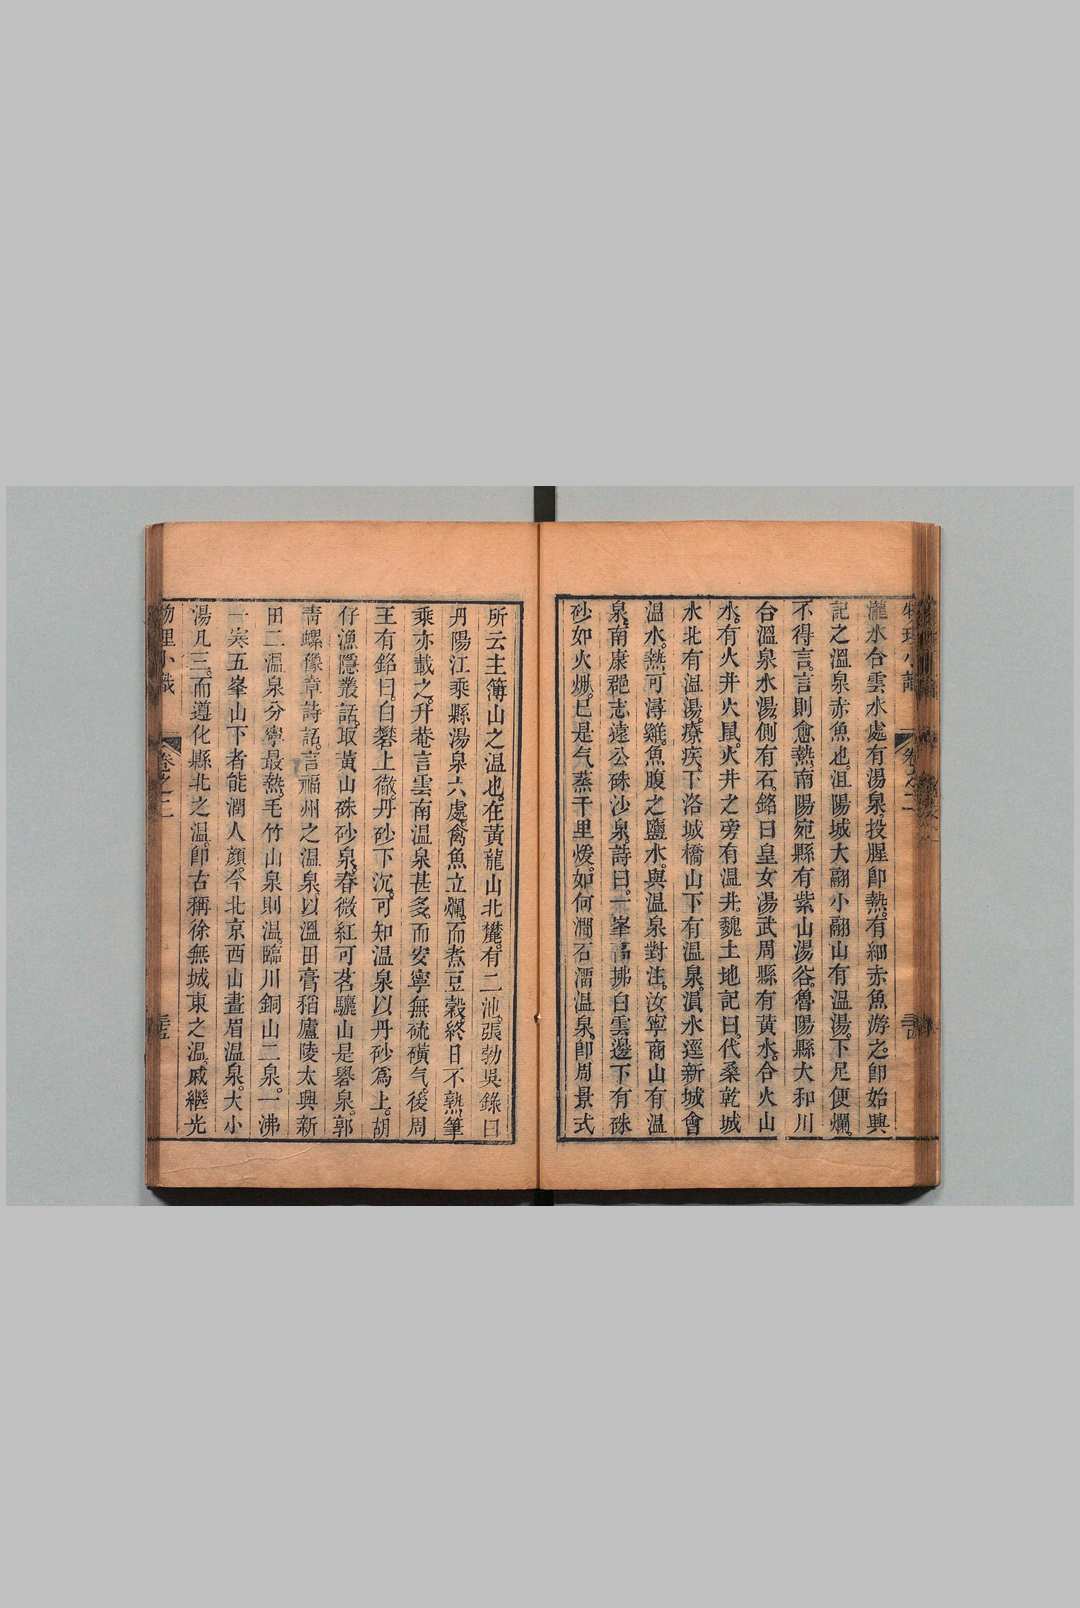 瀧水合雲水處有湯泉。投腥即熱。有細赤魚游之。即始興
記之溫泉赤魚也。沮陽城大翮小翮山有溫湯。下足便爛。
不得言。言則愈熱。南陽宛縣有紫山湯谷。魯陽縣大和川
合溫泉水。湯側有石。銘曰皇女湯。武周縣有黃水。合火山
水。有火井火鼠。火井之旁有溫井。魏土地記曰。代桑乾城
水北有溫湯。療疾。下洛城橋山下有溫泉。溳水逕新城會
溫水。熱可燖雞。魚腹之鹽水。與溫泉對注。汝寧商山有溫
泉。南康郡志遠公硃沙泉。詩曰。一峯高拂白雲邊。下有硃
砂如火燃。巳是气蒸千里煖。如何澗石霤溫泉。卽周景式
所云主簿山之温也。在黃龍山北麓。有二池。張勃吳錄曰
丹陽江乘縣湯泉六處。禽魚立爛。而煮豆穀終日不熟。筆
乘亦載之。升菴言雲南温泉甚多。而安寧無硫磺气。後周
王有銘曰。白礬上徹。丹砂下沉。可知温泉以丹砂爲上。胡
仔漁隱叢話。取黃山硃砂泉。春微紅可茗。驪山是礜泉。郭
青螺豫章詩話。言福州之温泉。以溫田膏稻。廬陵太興新
田二温泉。分寧最熱。毛竹山泉則温。臨川銅山二泉。一沸
一寒。五峯山下者能潤人顔。今北京西山畫眉温泉。大小
湯凡三。而遵化縣北之温。卽古稱徐無城東之温。戚繼光
物理小識
卷之二